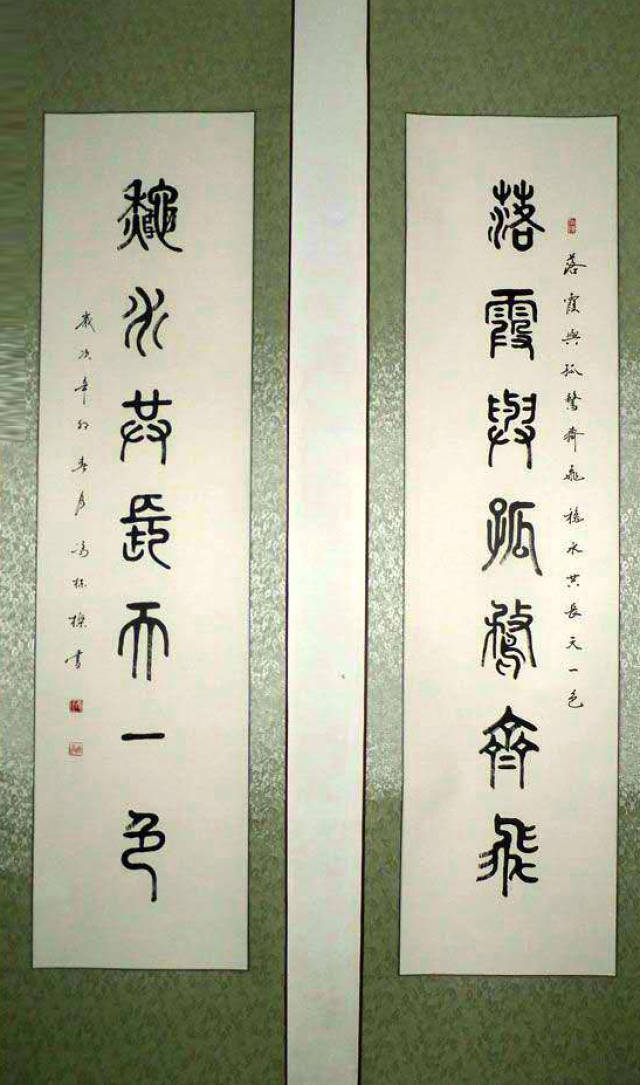 落霞與孤鶩齊飛穐水共長天一色
落霞與孤鶩齊飛
龝水共長天一色
歲次辛卯春月書